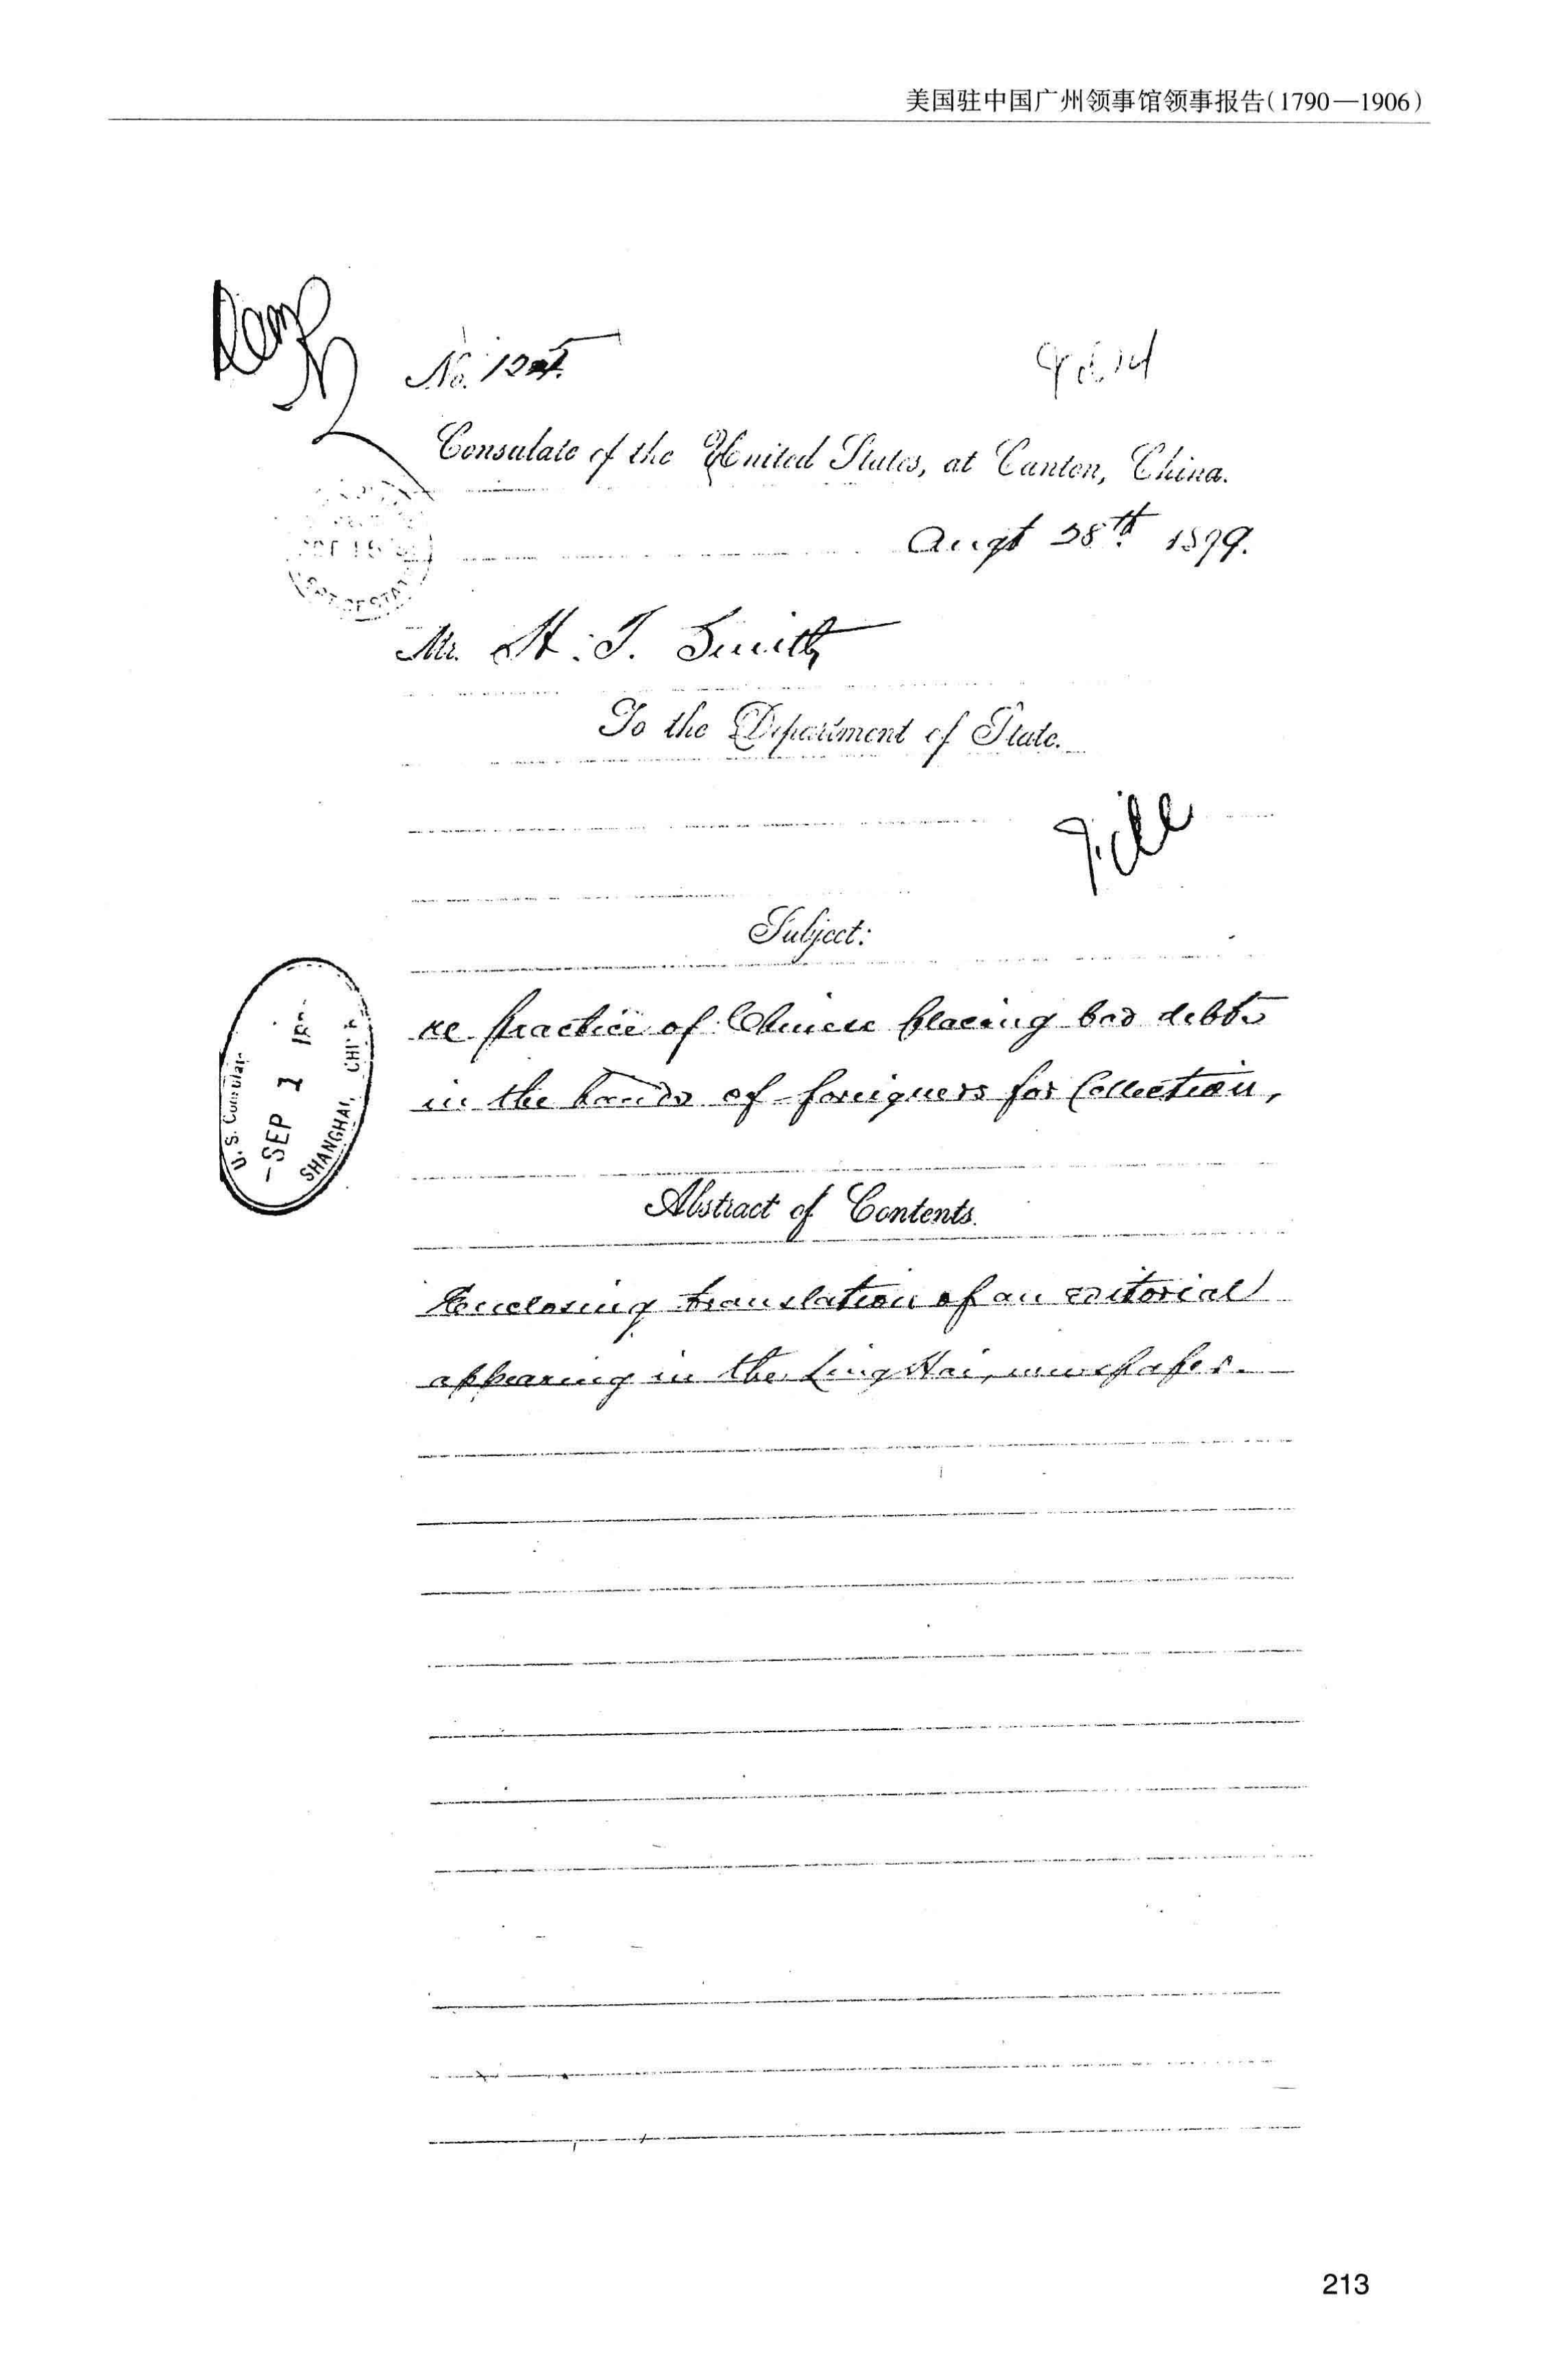 美国驻中国广州领事馆领事报告(1790—1906)
No. 125.
Consulate of the United States, at Canton, China.
Augt 28th 1899.
Mr. H. T. Smith
To the Department of State.
File
Subject:
re practice of Chinese placing bad debts
in the hands of foreigners for Collection,
U. S. Consulate
SEP 1
SHANGHAI,
Abstract of Contents.
Enclosing translation of an editorial
appearing in the Ling Hai, newspaper.
213